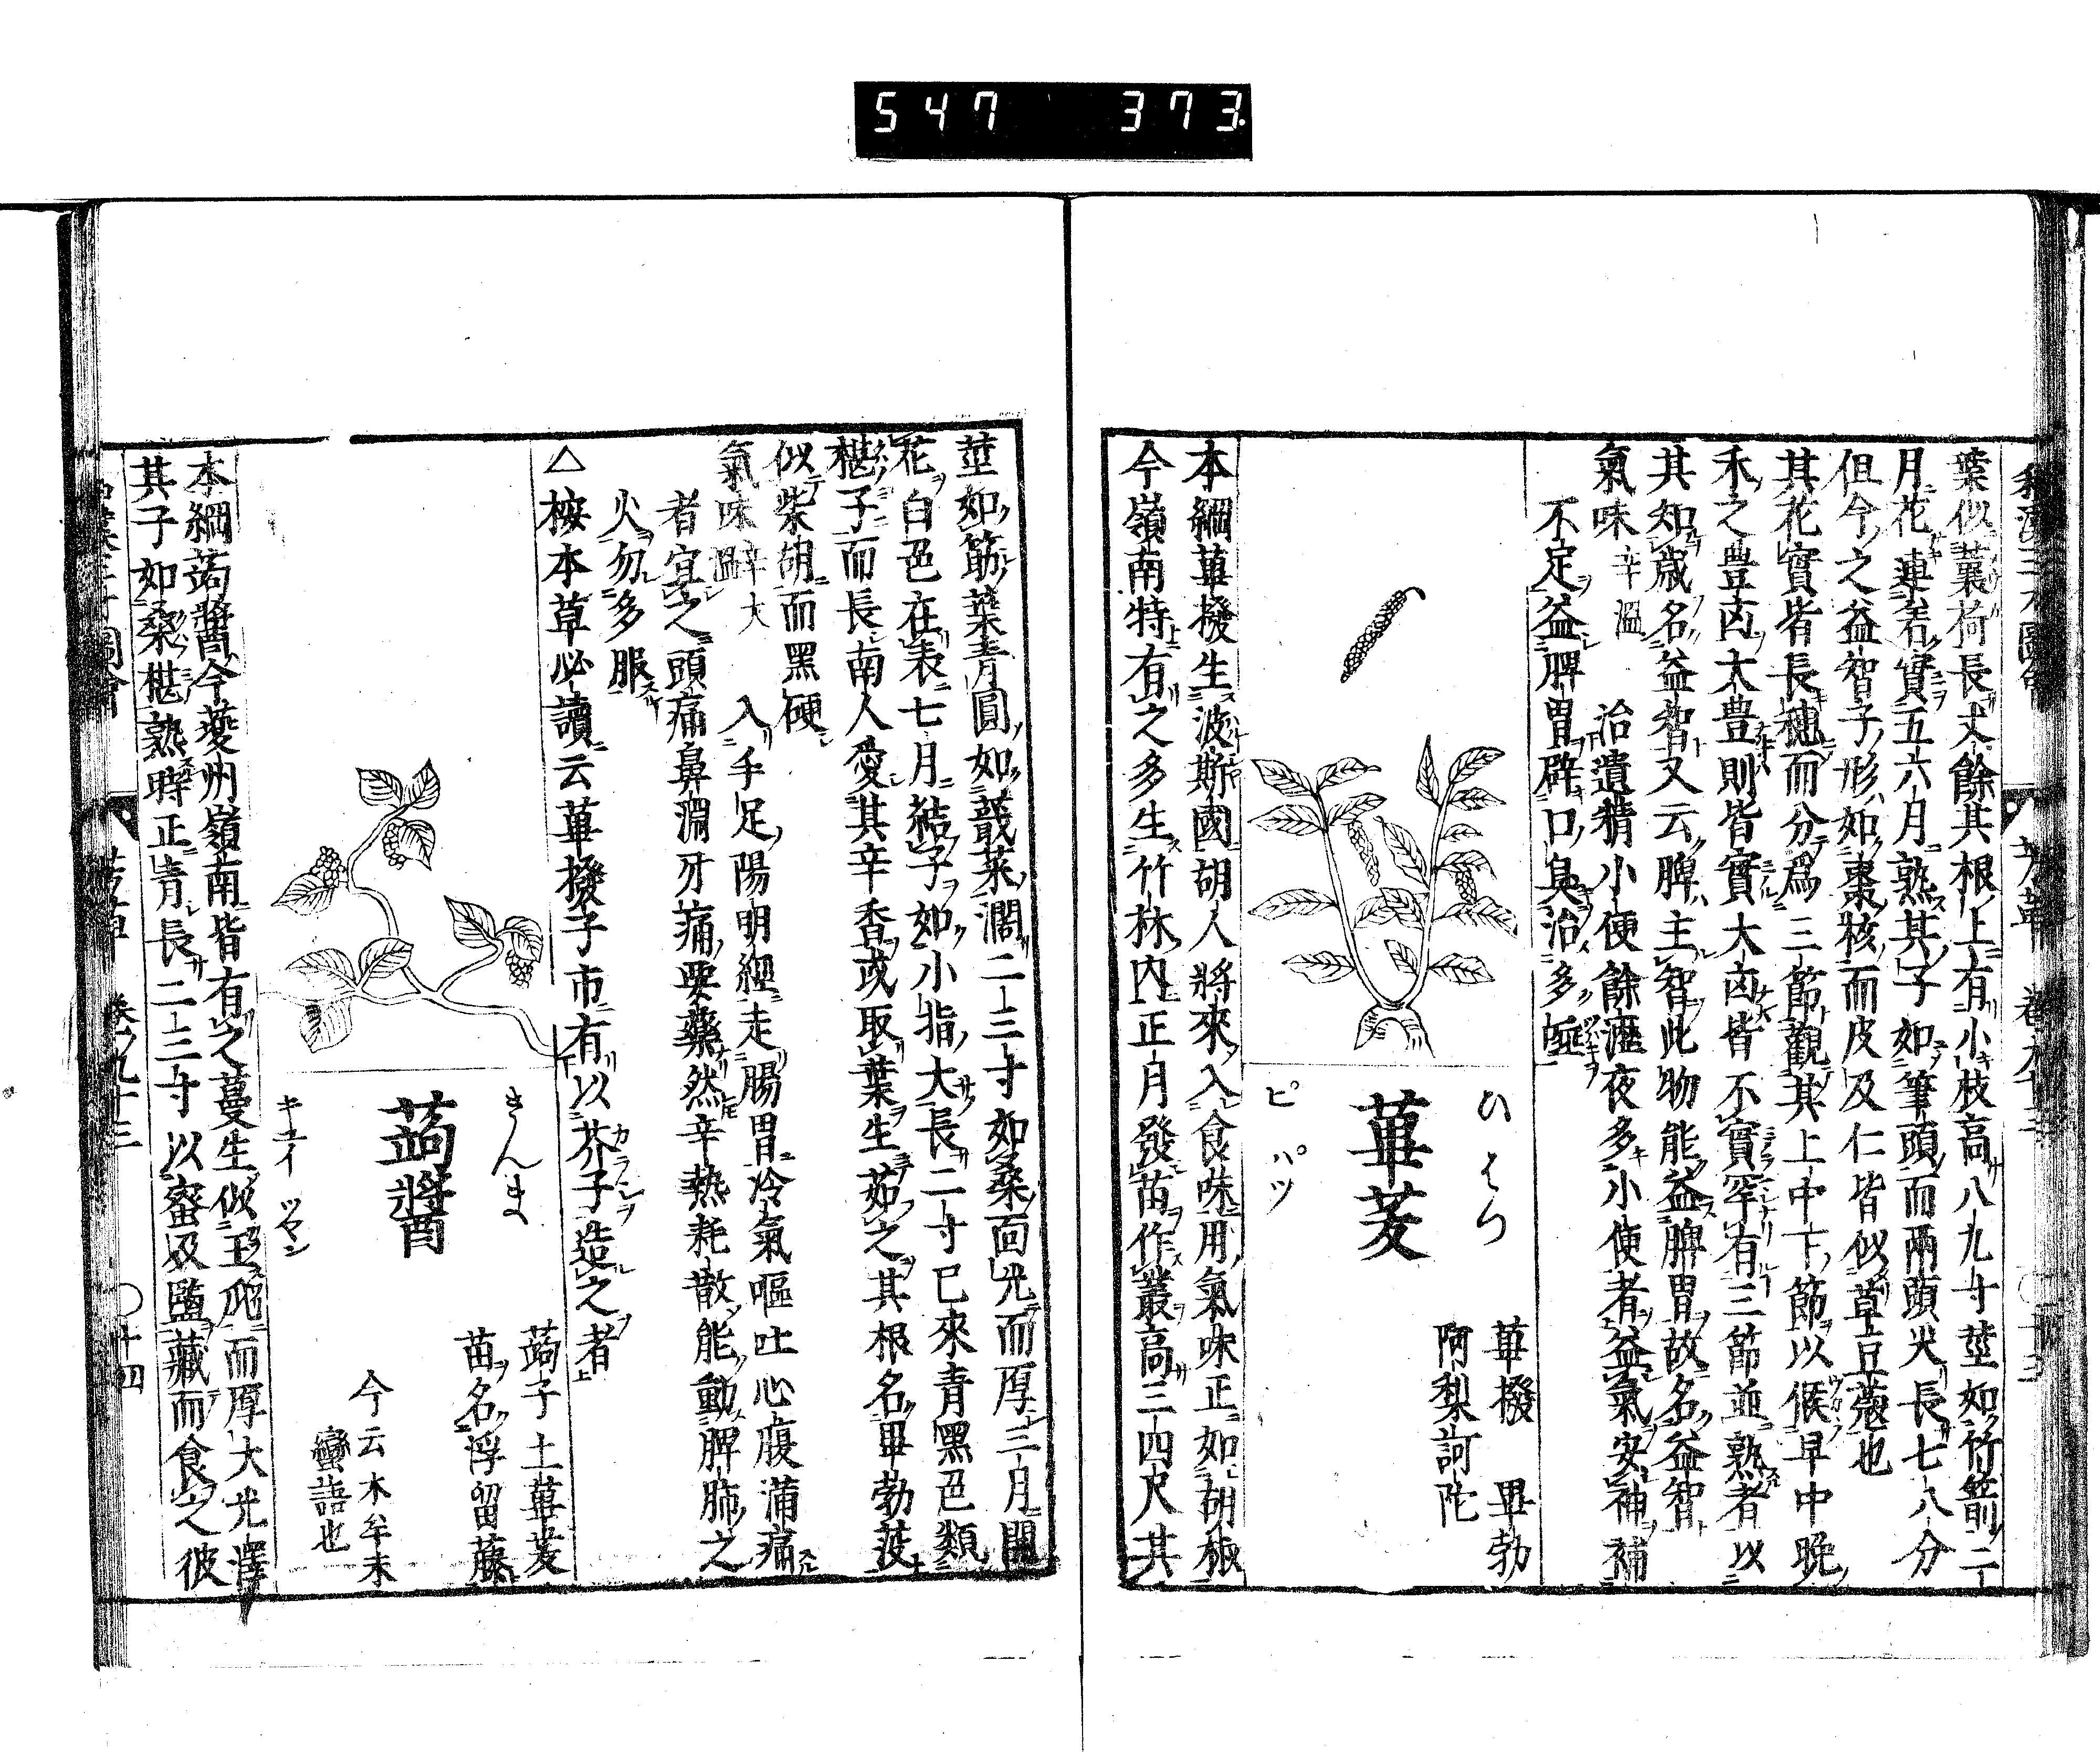 547 373.
葉似蘘荷長丈餘其根上有小枝高八九寸莖如竹箭二
月花連着實五六月熟其子如筆頭而兩頭尖長七八分
但今之益智子形如棗核而皮及仁皆似草豆蔻也
其花實皆長穗而分爲三節觀其上中下節以候早中晚
禾之豊凶大豊則皆實大凶皆不實罕有三節並熟者以
其知歳名益智又云脾主智此物能益脾胃故名益智
氣味 辛溫 治遺精小便餘瀝夜多小便者益氣安神補
不足益脾胃辟口臭治多唾
ひはつ
蓽茇
ピパツ
蓽撥 畢勃
阿梨訶陀
本綱蓽撥生波斯國胡人將來入食味用氣味正如胡椒
今嶺南特有之多生竹林内正月發苗作叢高三四尺其
莖如筯葉青圓如蕺菜濶二三寸如桑面光而厚三月開
花白色在表七月結子如小指大長二寸已來青黑色類
椹子而長南人愛其辛香或取葉生茹之其根名畢勃茇
似柴胡而黑硬
氣味 辛大溫 入手足陽明經走腸胃冷氣嘔吐心腹滿痛
者宜之頭痛鼻淵牙痛要藥然辛熱耗散能動脾肺之
火勿多服
△按本草必讀云蓽撥子市有以芥子造之者
きんま
蒟醬
キユイ ツヤン
蒟子 土蓽茇
苗名浮留藤
今云木牟未
蠻語也
本綱蒟醬今夔州嶺南皆有之蔓生似王瓜而厚大光澤
其子如桑椹熟時正青長二三寸以蜜及鹽藏而食之彼
芳草 卷ノ九十三 〇十四